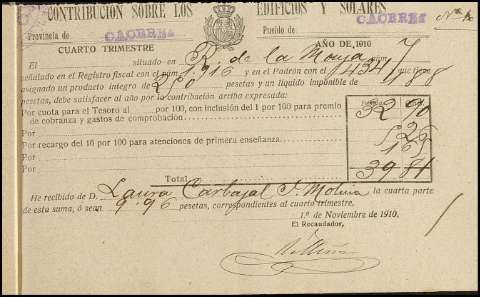 CONTRIBUCIÓN SOBRE LOS EDIFICIOS Y SOLARES
Provincia de CACERES Pueblo de CACERES
CUARTO TRIMESTRE AÑO DE 1910
El situado en R. de la Moya núm. 7
señalado en el Registro fiscal con el núm. 1916 y en el Padrón con el 1434 que
asignando un producto íntegro de 250 pesetas y un líquido imponible de
pesetas, debe satisfacer al año por la contribución arriba expresada:
Por cuota para el Tesoro al por 100, con inclusión del 1 por 100 para premio
de cobranza y gastos de comprobación
Por
Por recargo del 16 por 100 para atenciones de primera enseñanza.
Por
Total 39 81
He recibido de D. Laura Carbajal S. Molina la cuarta parte
de esta suma, ó sean 9.96 pesetas, correspondientes al cuarto trimestre.
1.º de Noviembre de 1910.
El Recaudador,